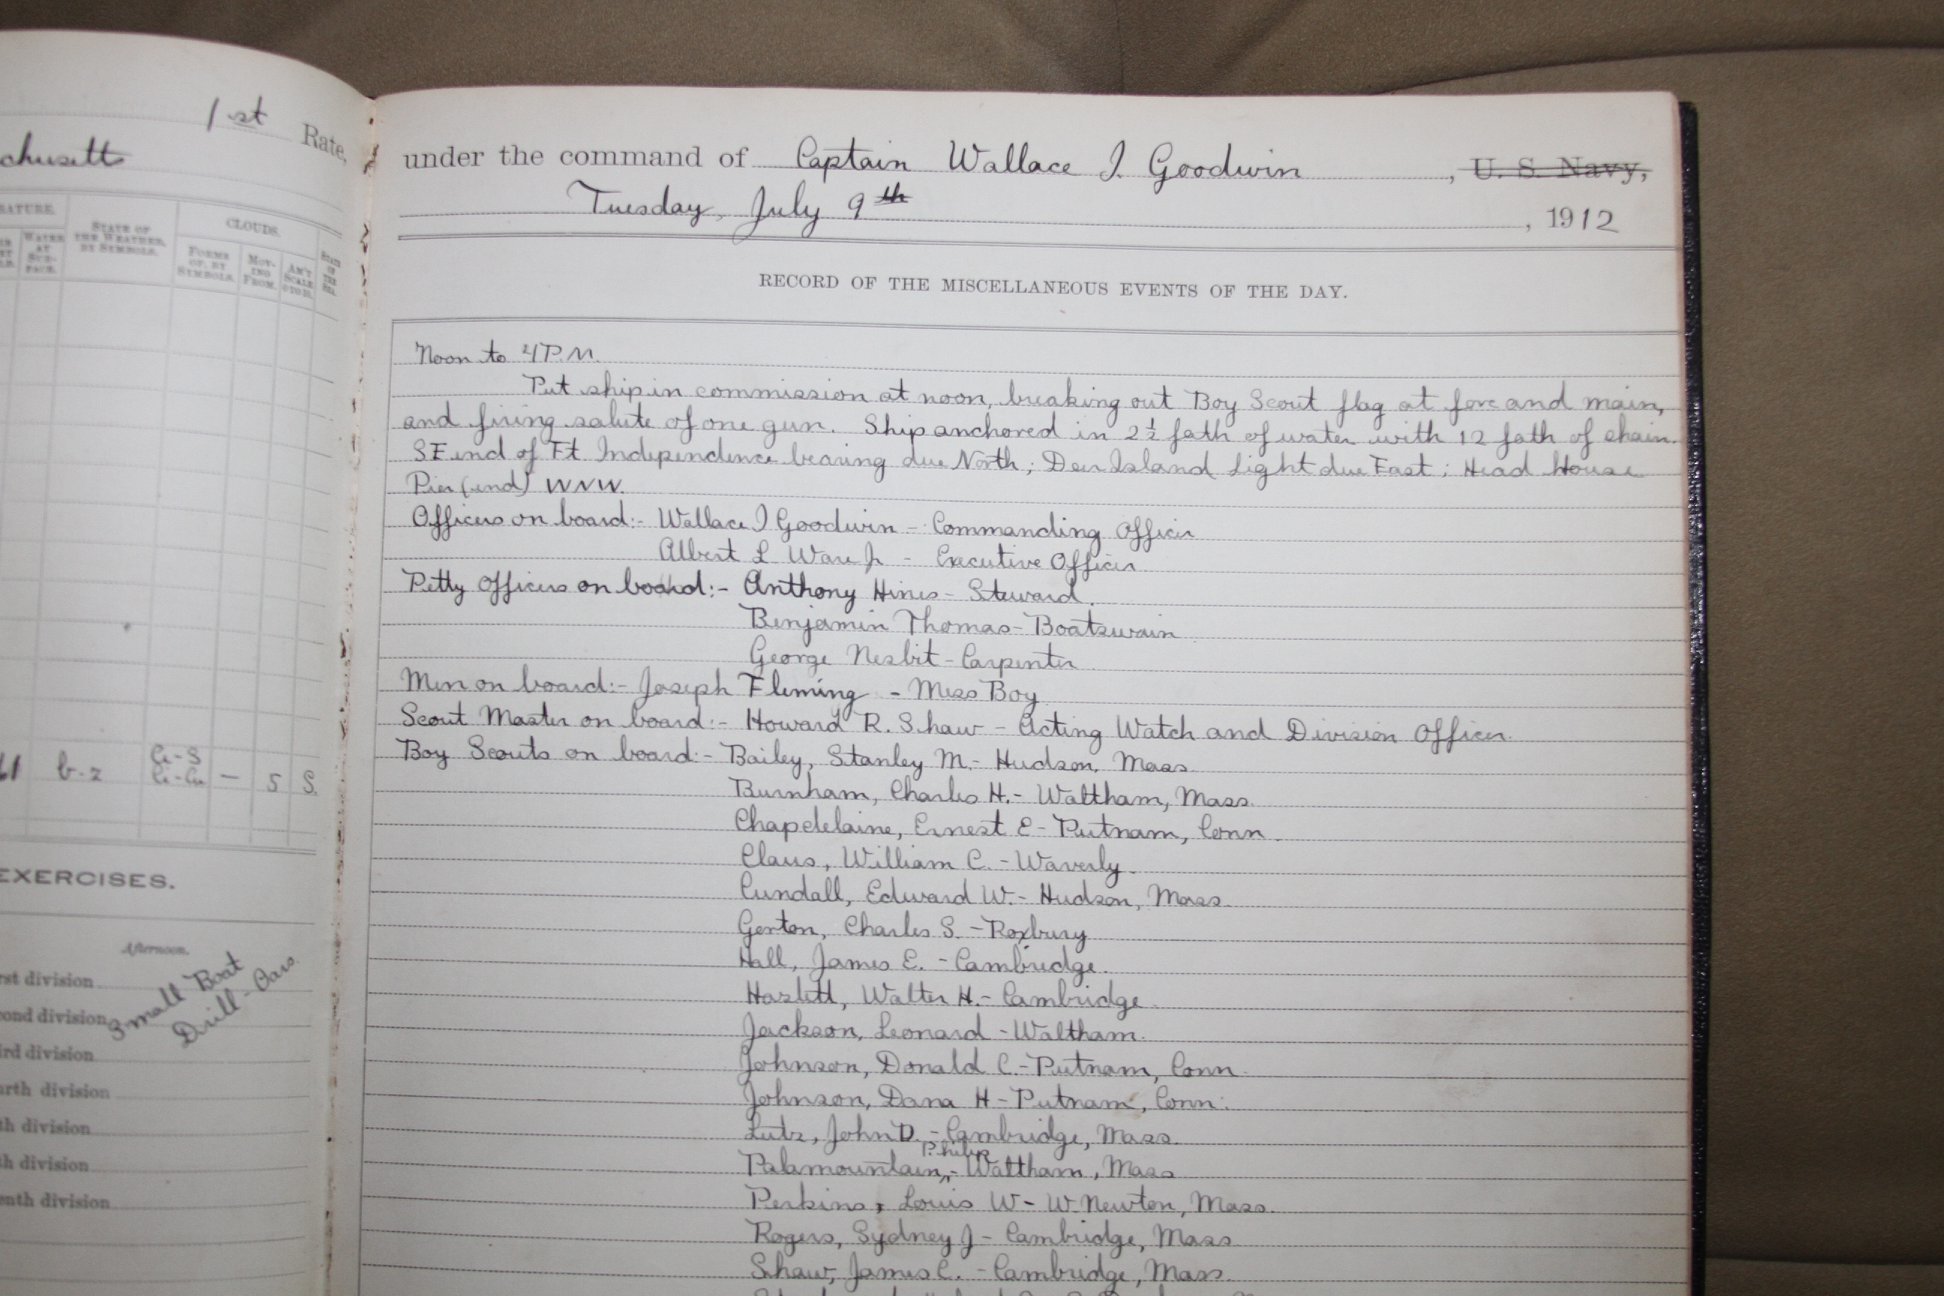 1st Rate,
chusetts
RATURE.
WATER AT SUR-FACE.
STATE OF THE WEATHER, BY SYMBOLS.
CLOUDS.
FORMS OF, BY SYMBOLS.
MOV-ING FROM.
AM'T SCALE 0 TO 10.
STATE OF THE SEA.
b.z
Ci-S
Ci-Cu
— 5 S.
EXERCISES.
Afternoon.
rst division
ond division
ird division
urth division
th division
th division
enth division
Small Boat
Drill-Oars.
under the command of Captain Wallace I. Goodwin, U. S. Navy,
Tuesday, July 9th, 1912
RECORD OF THE MISCELLANEOUS EVENTS OF THE DAY.
Noon to 4 P.M.
Put ship in commission at noon, breaking out Boy Scout flag at fore and main,
and firing salute of one gun. Ship anchored in 2½ fath of water with 12 fath of chain.
SE end of Ft Independence bearing due North; Deer Island Light due East; Head House
Pier (end) WNW.
Officers on board:- Wallace I Goodwin - Commanding Officer
Albert L Ware Jr - Executive Officer
Petty Officers on board:- Anthony Hines - Steward.
Benjamin Thomas - Boatswain
George Nesbit - Carpenter
Men on board:- Joseph Fleming - Mess Boy
Scout Master on board:- Howard R. Shaw - Acting Watch and Division Officer.
Boy Scouts on board:- Bailey, Stanley M. - Hudson, Mass.
Burnham, Charles H. - Waltham, Mass.
Chapdelaine, Ernest E - Putnam, Conn.
Claus, William C. - Waverly.
Cundall, Edward W. - Hudson, Mass.
Gorton, Charles S. - Roxbury
Hall, James E. - Cambridge.
Hazlett, Walter H. - Cambridge.
Jackson, Leonard - Waltham.
Johnson, Donald C. - Putnam, Conn.
Johnson, Dana H - Putnam, Conn.
Lutz, John D. - Cambridge, Mass.
Palamountain, Philip - Waltham, Mass
Perkins, Louis W - W. Newton, Mass.
Rogers, Sydney J - Cambridge, Mass
Shaw, James C. - Cambridge, Mass.